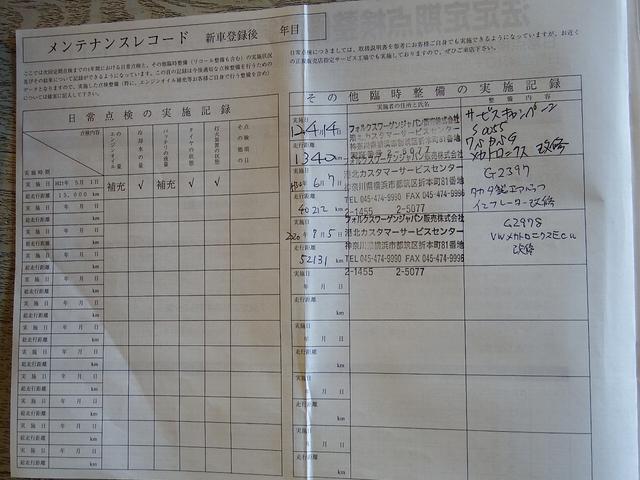 メンテナンスレコード 新車登録後 年目
ここでは次回定期点検までの1年間における日常点検と、その他臨時整備(リコール整備も含む)の実施状況
及びその結果について記録ができるようになっています。この頁の記録は今後適切な点検整備を行うための
データとなりますので、実施した点検整備(特に、エンジンオイル補充等お客様ご自身で行う整備を含め)
については確実に記入して下さい。
日常点検につきましては、取扱説明書を参考にお客様ご自身でも実施できるようになっていますが、お近く
の正規販売店指定サービス工場でも実施しておりますので、ぜひご来店下さい。
日常点検の実施記録
点検内容
実施時期
エンジンオイルの量
冷却水の量
バッテリの液量
タイヤの状態
灯火装置の状態
その他の点検項目
実施日 H21年 5月 1日
補充 √ 補充 √ √
総走行距離 15,000 km
実施日 年 月 日
総走行距離 km
実施日 年 月 日
総走行距離 km
実施日 年 月 日
総走行距離 km
実施日 年 月 日
総走行距離 km
実施日 年 月 日
総走行距離 km
実施日 年 月 日
総走行距離 km
実施日 年 月 日
総走行距離 km
実施日 年 月 日
総走行距離 km
実施日 年 月 日
総走行距離 km
実施日 年 月 日
総走行距離 km
実施日 年 月 日
総走行距離 km
その他臨時整備の実施記録
実施者の住所と氏名
整備内容
実施日
12年4月14日
走行距離
1340 km
フォルクスワーゲンジャパン販売株式会社
港北カスタマーサービスセンター
サービスキャンペーン
メカトロニクス 改修
実施日
6月7日
走行距離
40212 km
フォルクスワーゲンジャパン販売株式会社
港北カスタマーサービスセンター
神奈川県横浜市都筑区折本町81番地
TEL 045-474-9990 FAX 045-474-9996
2-1455 2-5077
G2397
タカタ製エアバッグ
インフレーター改修
実施日
2020年9月5日
走行距離
52131 km
フォルクスワーゲンジャパン販売株式会社
港北カスタマーサービスセンター
神奈川県横浜市都筑区折本町81番地
TEL 045-474-9990 FAX 045-474-9996
2-1455 2-5077
G2978
VWメカトロニクスECU
改修
実施日
年 月 日
走行距離
km
実施日
年 月 日
走行距離
km
実施日
年 月 日
走行距離
km
実施日
年 月 日
走行距離
km